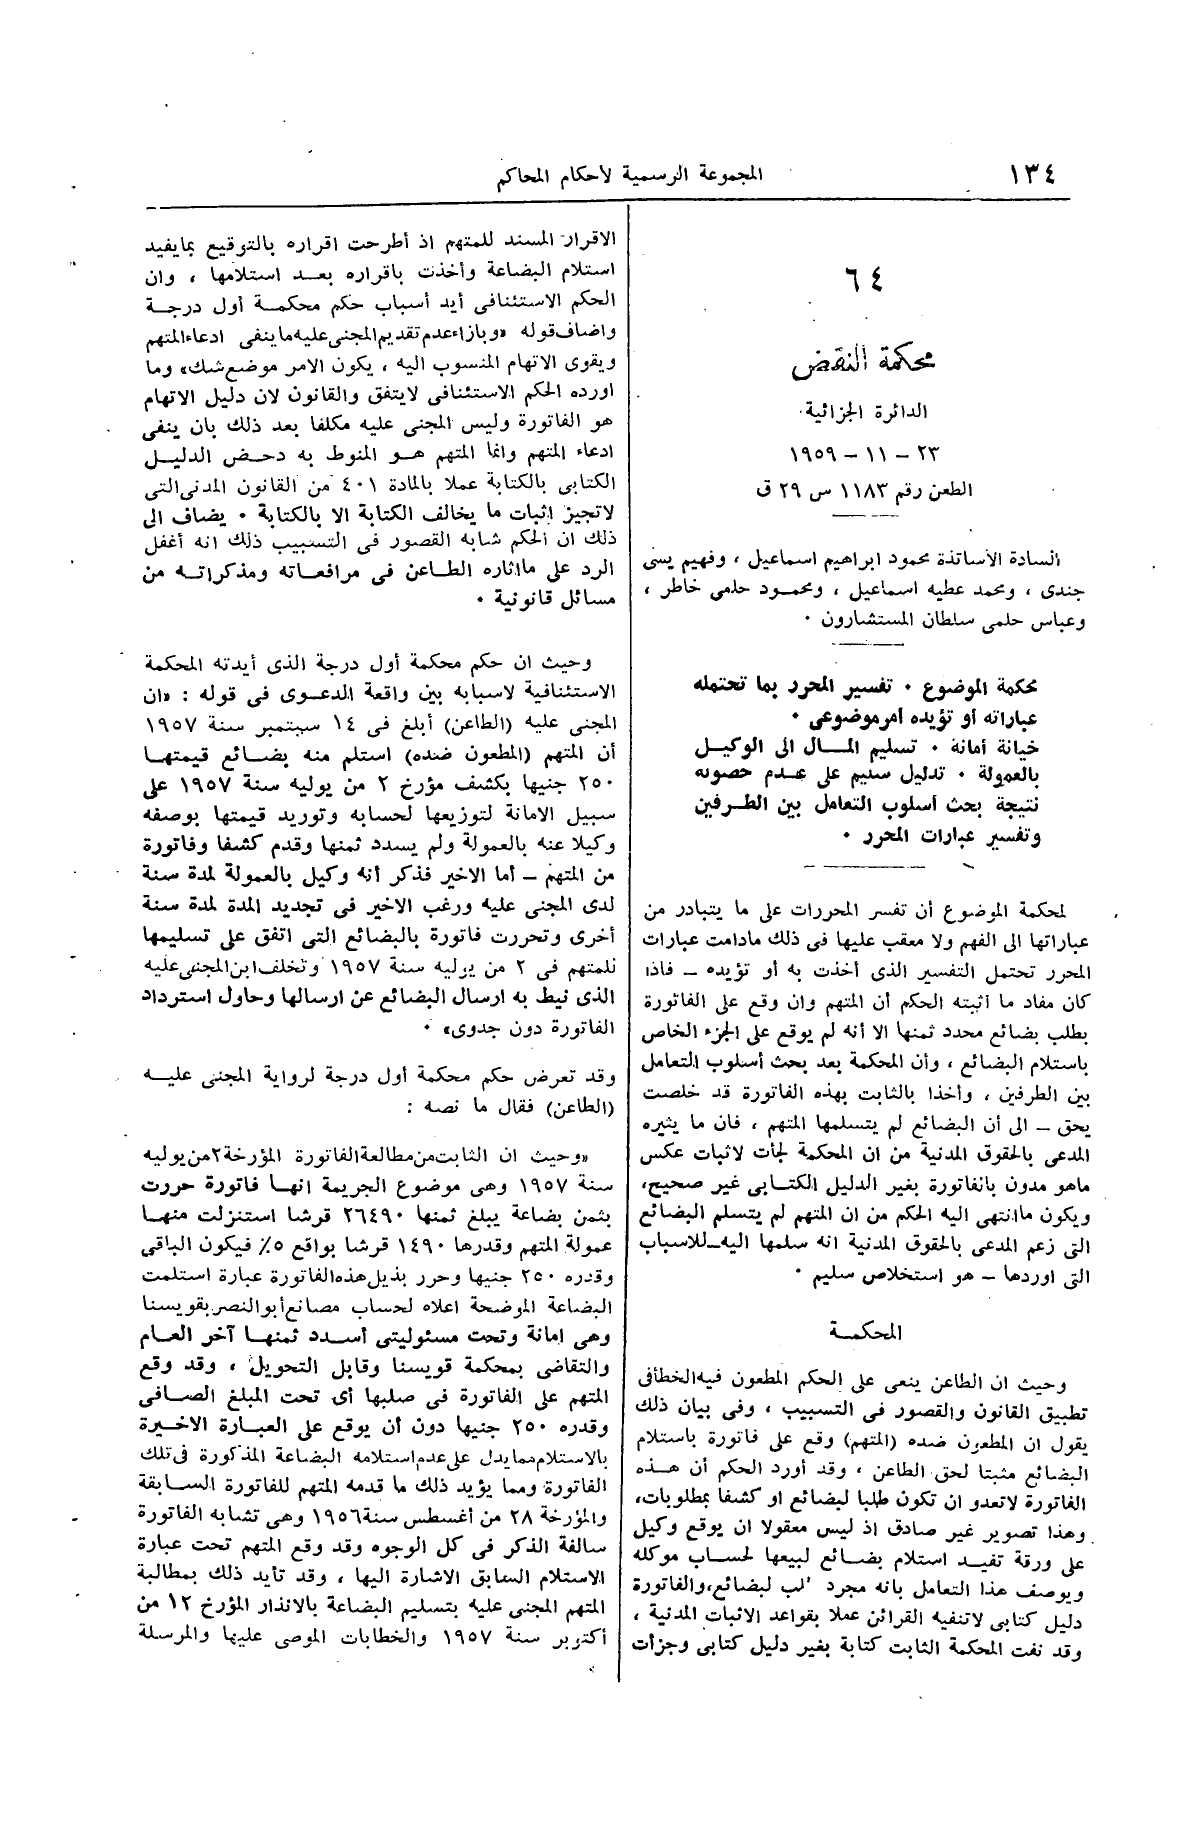 ١٣٤
المجموعة الرسمية لأحكام المحاكم
٦٤
محكمة النقض
الدائرة الجزائية
٢٣ – ١١ – ١٩٥٩
الطعن رقم ١١٨٣ س ٢٩ ق
السادة الأساتذة محمود ابراهيم اسماعيل ، وفهيم يسى
جندى ، ومحمد عطيه اسماعيل ، ومحمود حلمى خاطر ،
وعباس حلمى سلطان المستشارون ٠
محكمة الموضوع ٠ تفسير المحرر بما تحتمله
عباراته أو تؤيده أمر موضوعى ٠
خيانة أمانة ٠ تسليم المال الى الوكيل
بالعمولة ٠ تدليل سليم على عدم حصوله
نتيجة بحث أسلوب التعامل بين الطرفين
وتفسير عبارات المحرر ٠
لمحكمة الموضوع أن تفسر المحررات على ما يتبادر من
عباراتها الى الفهم ولا معقب عليها فى ذلك مادامت عبارات
المحرر تحتمل التفسير الذى أخذت به أو تؤيده – فاذا
كان مفاد ما أثبته الحكم أن المتهم وان وقع على الفاتورة
بطلب بضائع محدد ثمنها الا أنه لم يوقع على الجزء الخاص
باستلام البضائع ، وأن المحكمة بعد بحث أسلوب التعامل
بين الطرفين ، وأخذا بالثابت بهذه الفاتورة قد خلصت
بحق – الى أن البضائع لم يتسلمها المتهم ، فان ما يثيره
المدعى بالحقوق المدنية من ان المحكمة لجأت لاثبات عكس
ماهو مدون بالفاتورة بغير الدليل الكتابى غير صحيح،
ويكون ماانتهى اليه الحكم من ان المتهم لم يتسلم البضائع
التى زعم المدعى بالحقوق المدنية انه سلمها اليه–للاسباب
التى اوردها – هو استخلاص سليم ٠
المحكمة
وحيث ان الطاعن ينعى على الحكم المطعون فيه الخطأفى
تطبيق القانون والقصور فى التسبيب ، وفى بيان ذلك
يقول ان المطعون ضده (المتهم) وقع على فاتورة باستلام
البضائع مثبتا لحق الطاعن ، وقد أورد الحكم أن هذه
الفاتورة لاتعدو ان تكون طلبا لبضائع او كشفا بمطلوبات،
وهذا تصوير غير صادق اذ ليس معقولا ان يوقع وكيل
على ورقة تفيد استلام بضائع لبيعها لحساب موكله
ويوصف هذا التعامل بانه مجرد لب لبضائع،والفاتورة
دليل كتابى لاتنفيه القرائن عملا بقواعد الاثبات المدنية ،
وقد نفت المحكمة الثابت كتابة بغير دليل كتابى وجزأت
الاقرار المسند للمتهم اذ أطرحت اقراره بالتوقيع بمايفيد
استلام البضاعة وأخذت باقراره بعد استلامها ، وان
الحكم الاستئنافى أيد أسباب حكم محكمة أول درجة
واضاف قوله «وبازاء عدم تقديم المجنى عليه ما ينفى ادعاء المتهم
ويقوى الاتهام المنسوب اليه ، يكون الامر موضع شك» وما
اورده الحكم الاستئنافى لايتفق والقانون لان دليل الاتهام
هو الفاتورة وليس المجنى عليه مكلفا بعد ذلك بان ينفى
ادعاء المتهم وانما المتهم هو المنوط به دحض الدليل
الكتابى بالكتابة عملا بالمادة ٤٠١ من القانون المدنى التى
لاتجيز اثبات ما يخالف الكتابة الا بالكتابة ٠ يضاف الى
ذلك ان الحكم شابه القصور فى التسبيب ذلك انه أغفل
الرد على ماأثاره الطاعن فى مرافعاته ومذكراته من
مسائل قانونية ٠
وحيث ان حكم محكمة أول درجة الذى أيدته المحكمة
الاستئنافية لاسبابه بين واقعة الدعوى فى قوله : «ان
المجنى عليه (الطاعن) أبلغ فى ١٤ سبتمبر سنة ١٩٥٧
أن المتهم (المطعون ضده) استلم منه بضائع قيمتها
٢٥٠ جنيها بكشف مؤرخ ٢ من يوليه سنة ١٩٥٧ على
سبيل الامانة لتوزيعها لحسابه وتوريد قيمتها بوصفه
وكيلا عنه بالعمولة ولم يسدد ثمنها وقدم كشفا وفاتورة
من المتهم – أما الاخير فذكر أنه وكيل بالعمولة لمدة سنة
لدى المجنى عليه ورغب الاخير فى تجديد المدة لمدة سنة
أخرى وتحررت فاتورة بالبضائع التى اتفق على تسليمها
للمتهم فى ٢ من يوليه سنة ١٩٥٧ وتخلف ابن المجنى عليه
الذى نيط به ارسال البضائع عن ارسالها وحاول استرداد
الفاتورة دون جدوى» ٠
وقد تعرض حكم محكمة أول درجة لرواية المجنى عليه
(الطاعن) فقال ما نصه :
«وحيث ان الثابت من مطالعة الفاتورة المؤرخة ٢ من يوليه
سنة ١٩٥٧ وهى موضوع الجريمة انها فاتورة حررت
بثمن بضاعة يبلغ ثمنها ٢٦٤٩٠ قرشا استنزلت منها
عمولة المتهم وقدرها ١٤٩٠ قرشا بواقع ٥٪ فيكون الباقى
وقدره ٢٥٠ جنيها وحرر بذيل هذه الفاتورة عبارة استلمت
البضاعة الموضحة اعلاه لحساب مصانع أبو النصر بقويسنا
وهى امانة وتحت مسئوليتى أسدد ثمنها آخر العام
والتقاضى بمحكمة قويسنا وقابل التحويل ، وقد وقع
المتهم على الفاتورة فى صلبها أى تحت المبلغ الصافى
وقدره ٢٥٠ جنيها دون أن يوقع على العبارة الاخيرة
بالاستلام مما يدل على عدم استلامه البضاعة المذكورة فى تلك
الفاتورة ومما يؤيد ذلك ما قدمه المتهم للفاتورة السابقة
والمؤرخة ٢٨ من أغسطس سنة ١٩٥٦ وهى تشابه الفاتورة
سالفة الذكر فى كل الوجوه وقد وقع المتهم تحت عبارة
الاستلام السابق الاشارة اليها ، وقد تأيد ذلك بمطالبة
المتهم المجنى عليه بتسليم البضاعة بالانذار المؤرخ ١٢ من
أكتوبر سنة ١٩٥٧ والخطابات الموصى عليها والمرسلة